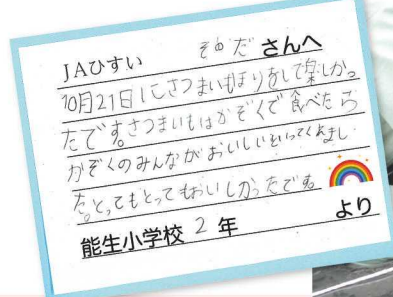 JAひすい そのださんへ
10月21日にさつまいもほりをして楽しかっ
たです。さつまいもはかぞくで食べたら
かぞくのみんながおいしいといってくれまし
た。とってもとってもおいしかったです。
能生小学校 2 年 より